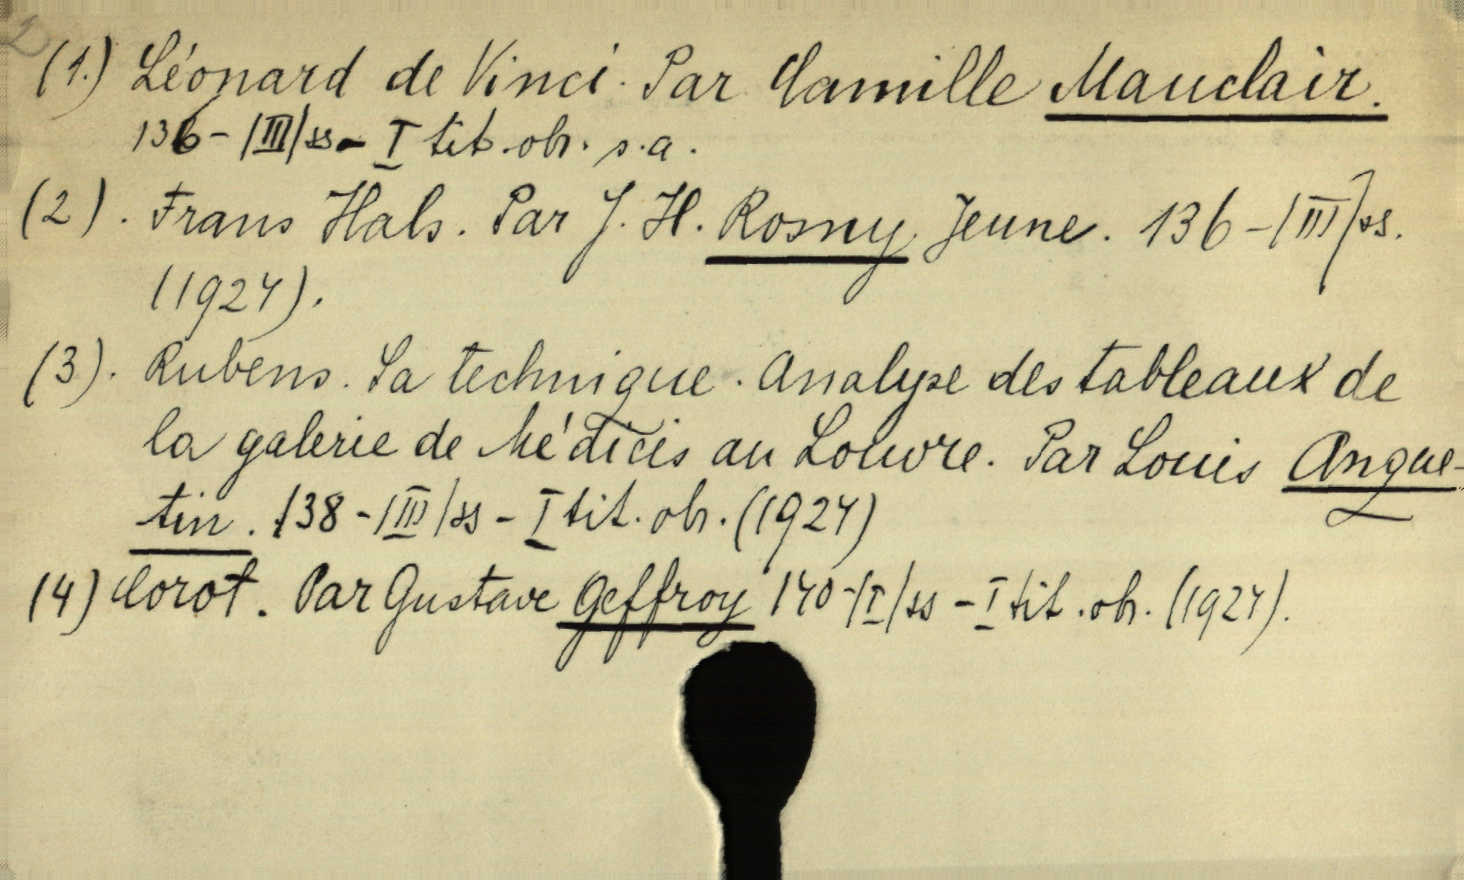 2
(1.) Léonard de Vinci. Par Camille Mauclair.
136-|III|ss- I tit.ob. s.a.
(2). Frans Hals. Par J. H. Rosny Jeune. 136-|III|ss.
(1924).
(3). Rubens. Sa technique. Analyse des tableaux de
la galerie de Médicis au Louvre. Par Louis Anque-
tin. 138-|III|ss- I tit. ob. (1924)
(4) Corot. Par Gustave Geffroy 140-|I|ss-I tit.ob. (1924).